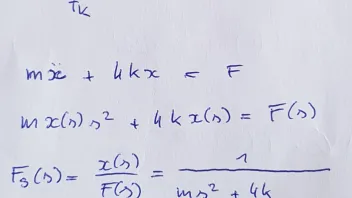 T_K
mẍ + 4kx = F
m x(s) s² + 4k x(s) = F(s)
F_s(s) = x(s)/F(s) = 1/(ms² + 4k)